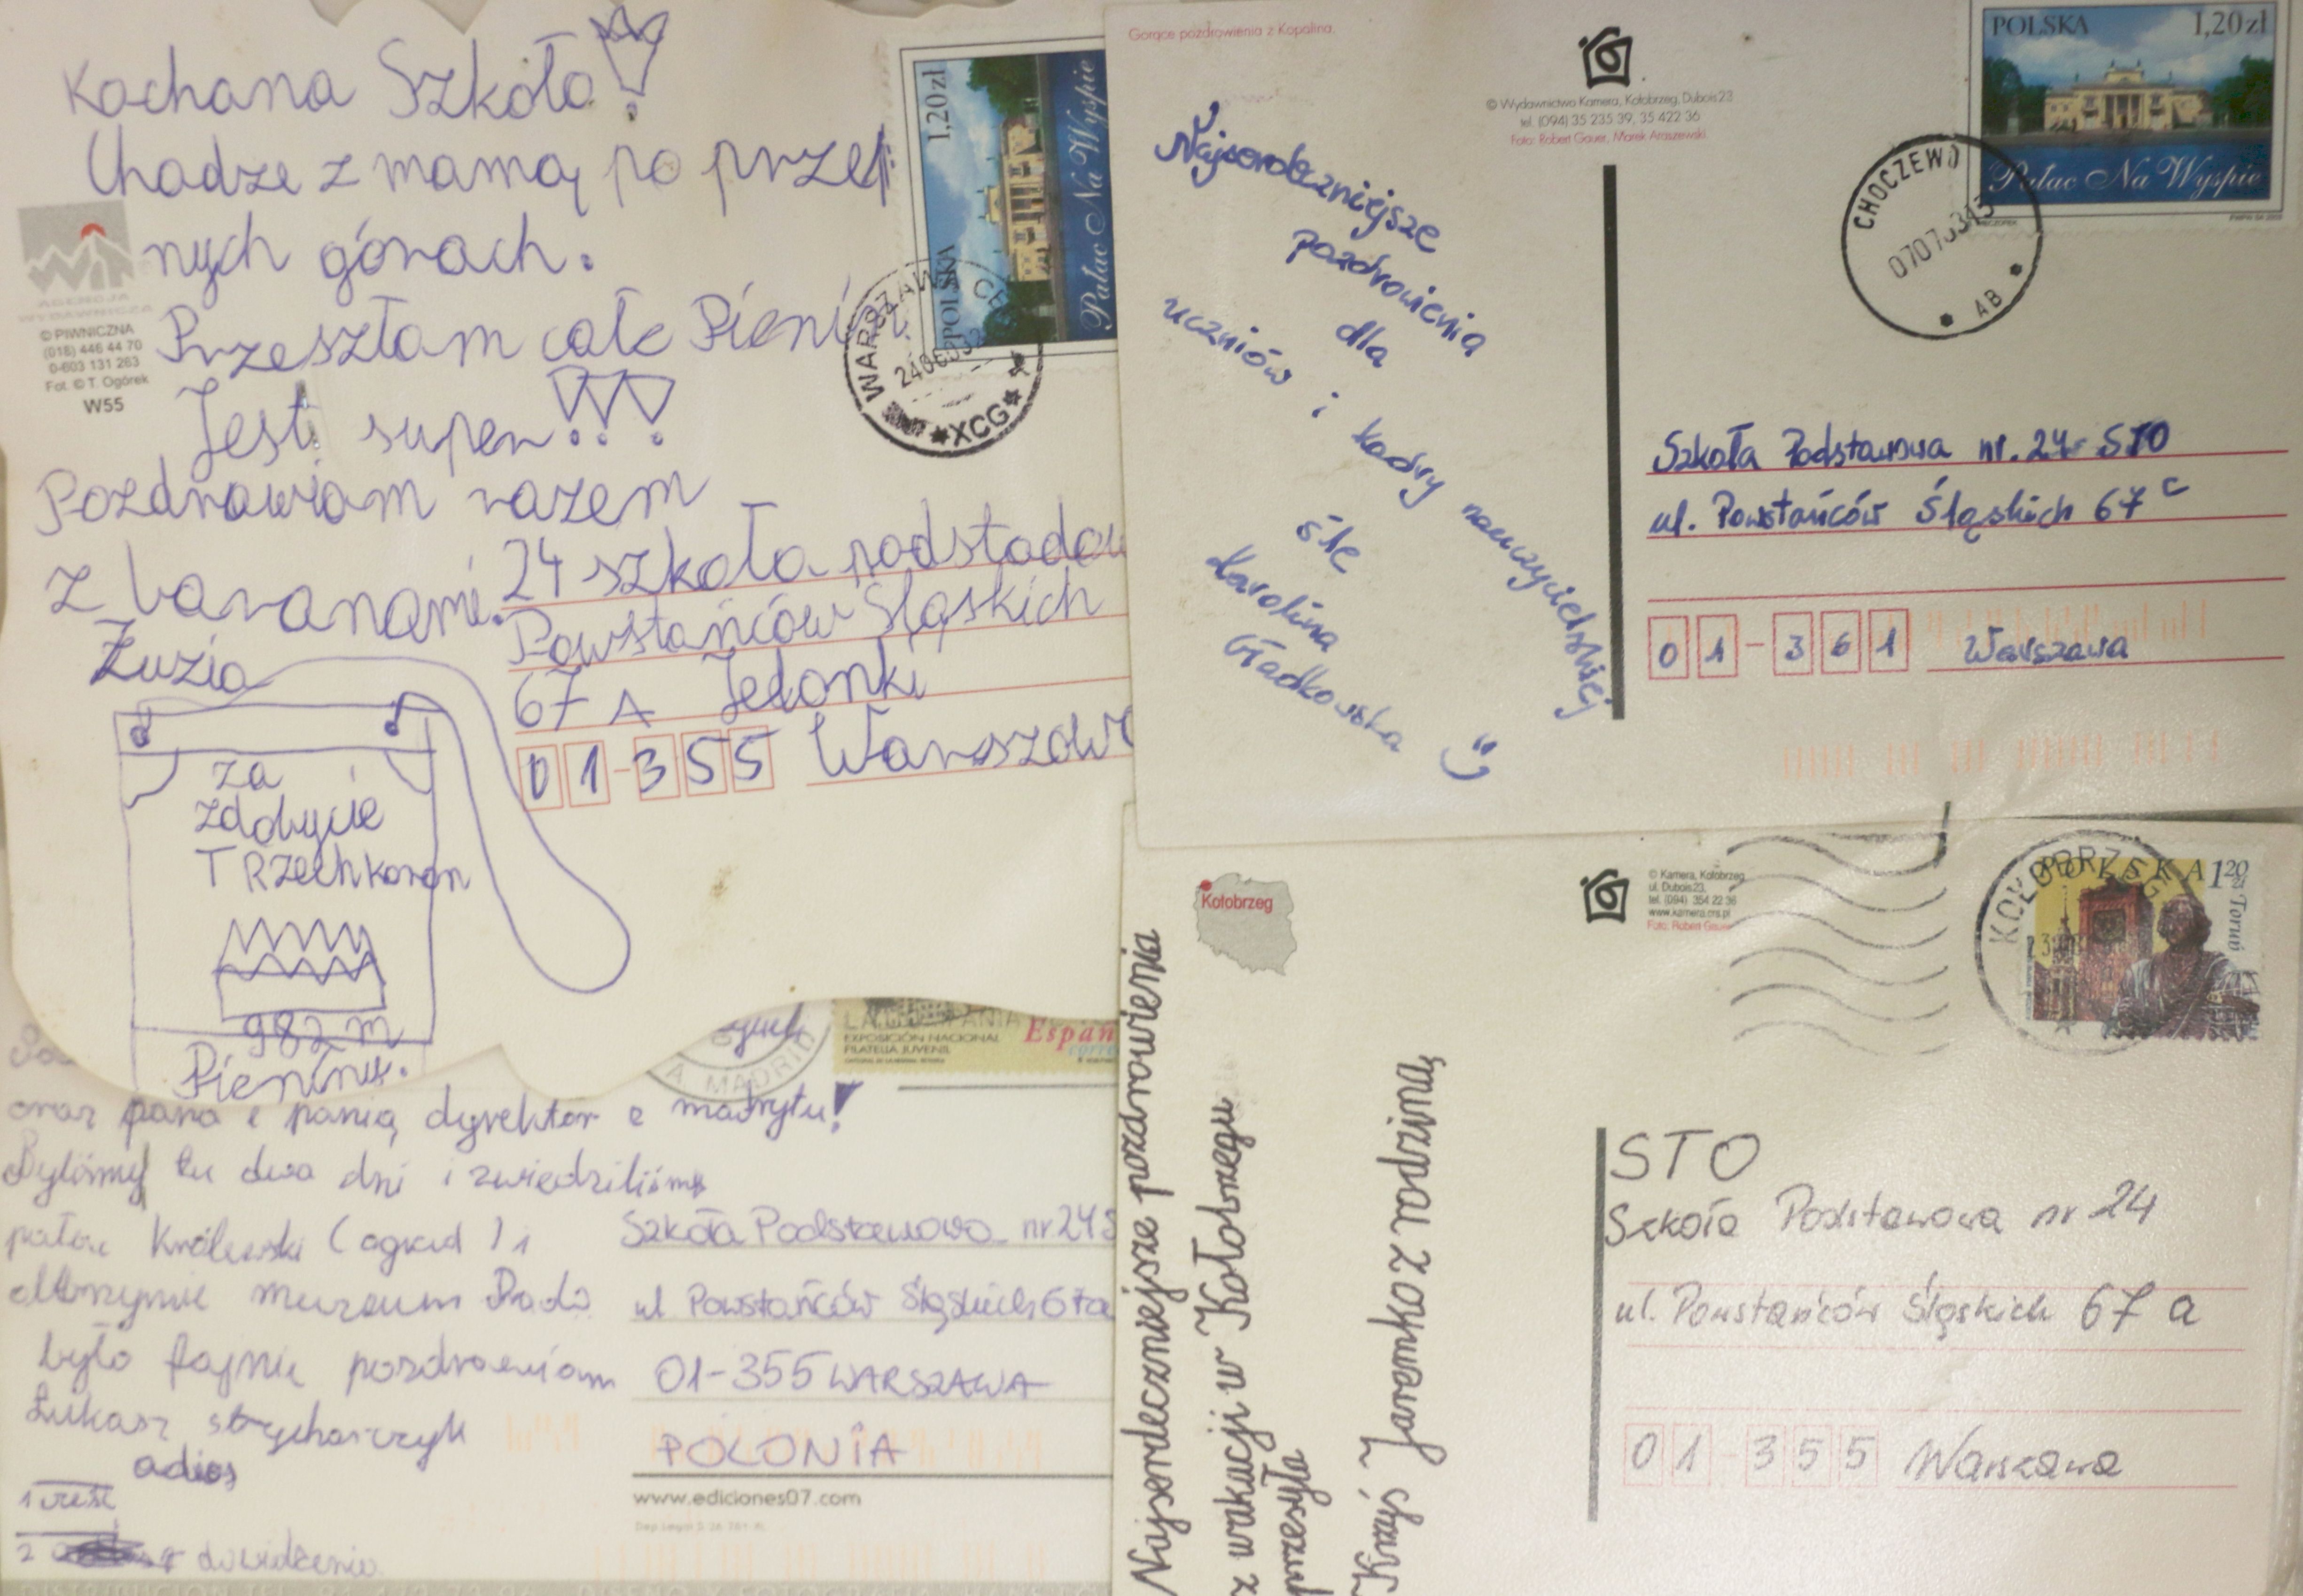 Kochana Szkoło!
Chodze z mamą po przep
nych górach.
Przeszłam całe Pieni
Jest super!!!
Pozdrawiam razem
z baranami.
Zuzia
WiT
AGENCJA
WYDAWNICZA
© PIWNICZNA
(018) 446 44 70
0-603 131 263
Fot. © T. Ogórek
W55
1,20 zł
POLSKA
Pałac Na Wyspie
WARSZAWA
XCG
24 szkoła podstadow
Powstańców Śląskich
67 A Jelonki
01-355 Warszowa
za
zdobycie
TRzech koron
982 m
Pieniny.
Gorące pozdrowienia z Kopalina.
© Wydawnictwo Kamera, Kołobrzeg, Dubois 23
tel. (094) 35 235 39, 35 422 36
Foto: Robert Gauer, Marek Araszewski
Najserdeczniejsze
pozdrowienia
dla
uczniów i kadry nauczycielskiej
śle
Karolina
Gładkowska
POLSKA 1,20 zł
Pałac Na Wyspie
CHOCZEWO
AB
Szkoła Podstawowa nr. 24 STO
ul. Powstańców Śląskich 67 c
01-361 Warszawa
LA
EXPOSICIÓN NACIONAL
FILATELIA JUVENIL
Españ
MADRID
oraz pana i panią dyrektor z madrytu!
Byliśmy tu dwa dni i zwiedziliśmy
pałac Królewski (ogród) i
olbrzymie muzeum Prado
było fajnie pozdrawiam
Łukasz strycharczyk
adios
2 dowidzenia
Szkoła Podstawowa nr 24 S
ul. Powstańców Śląskich 67a
01-355 WARSZAWA
POLONIA
www.ediciones07.com
Kołobrzeg
© Kamera, Kołobrzeg
ul. Dubois 23,
tel. (094) 354 22 36
www.kamera.cns.pl
Foto: Robert Gauer
Najserdeczniejsze pozdrowienia
z wakacji w Kołobrzegu
przesyła
Krzyś Jaremko z rodziną
KOŁOBRZEG
POLSKA 1,20 zł
Toruń
STO
Szkoła Podstawowa nr 24
ul. Powstańców Śląskich 67 a
01-355 Warszawa